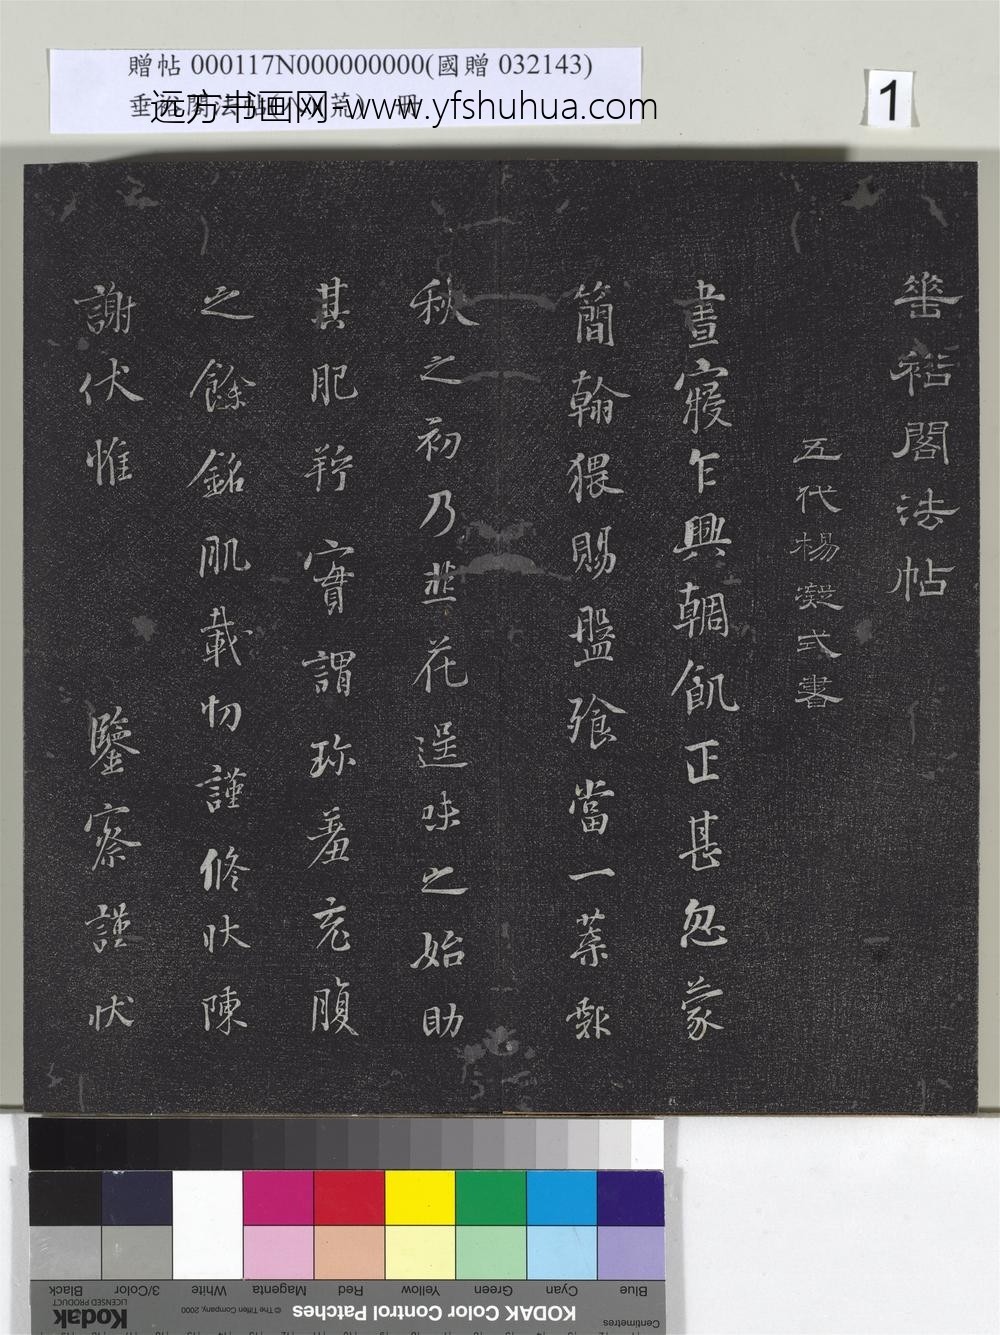 贈帖 000117N000000000(國贈 032143)
远方书画网-www.yfshuhua.com
1
垂裕閣法帖
五代楊凝式書
晝寢乍興輖飢正甚忽蒙
簡翰猥賜盤飧當一葉報
秋之初乃韭花逞味之始助
其肥羜實謂珍羞充腹
之餘銘肌載切謹修狀陳
謝伏惟 鑒察謹狀
Blue Cyan Green Yellow Red Magenta White 3/Color Black
Centimetres
KODAK Color Control Patches
© The Tiffen Company, 2000
Kodak
LICENSED PRODUCT